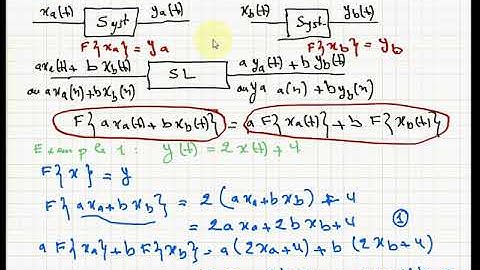 xa(t) Syst ya(t) xb(t) Syst yb(t)
F{xa} = ya F{xb} = yb
a xa(t) + b xb(t) SL a ya(t) + b yb(t)
ou a xa(n) + b xb(n) ou ya a(n) + b yb(n)
F{a xa(t) + b xb(t)} = a F{xa(t)} + b F{xb(t)}
Example 1: y(t) = 2x(t) + 4
F{x} = y
F{axa + bxb} = 2(axa + bxb) + 4
= 2axa + 2bxb + 4 1
a F{xa} + b F{xb} = a(2xa+4) + b(2xb+4)